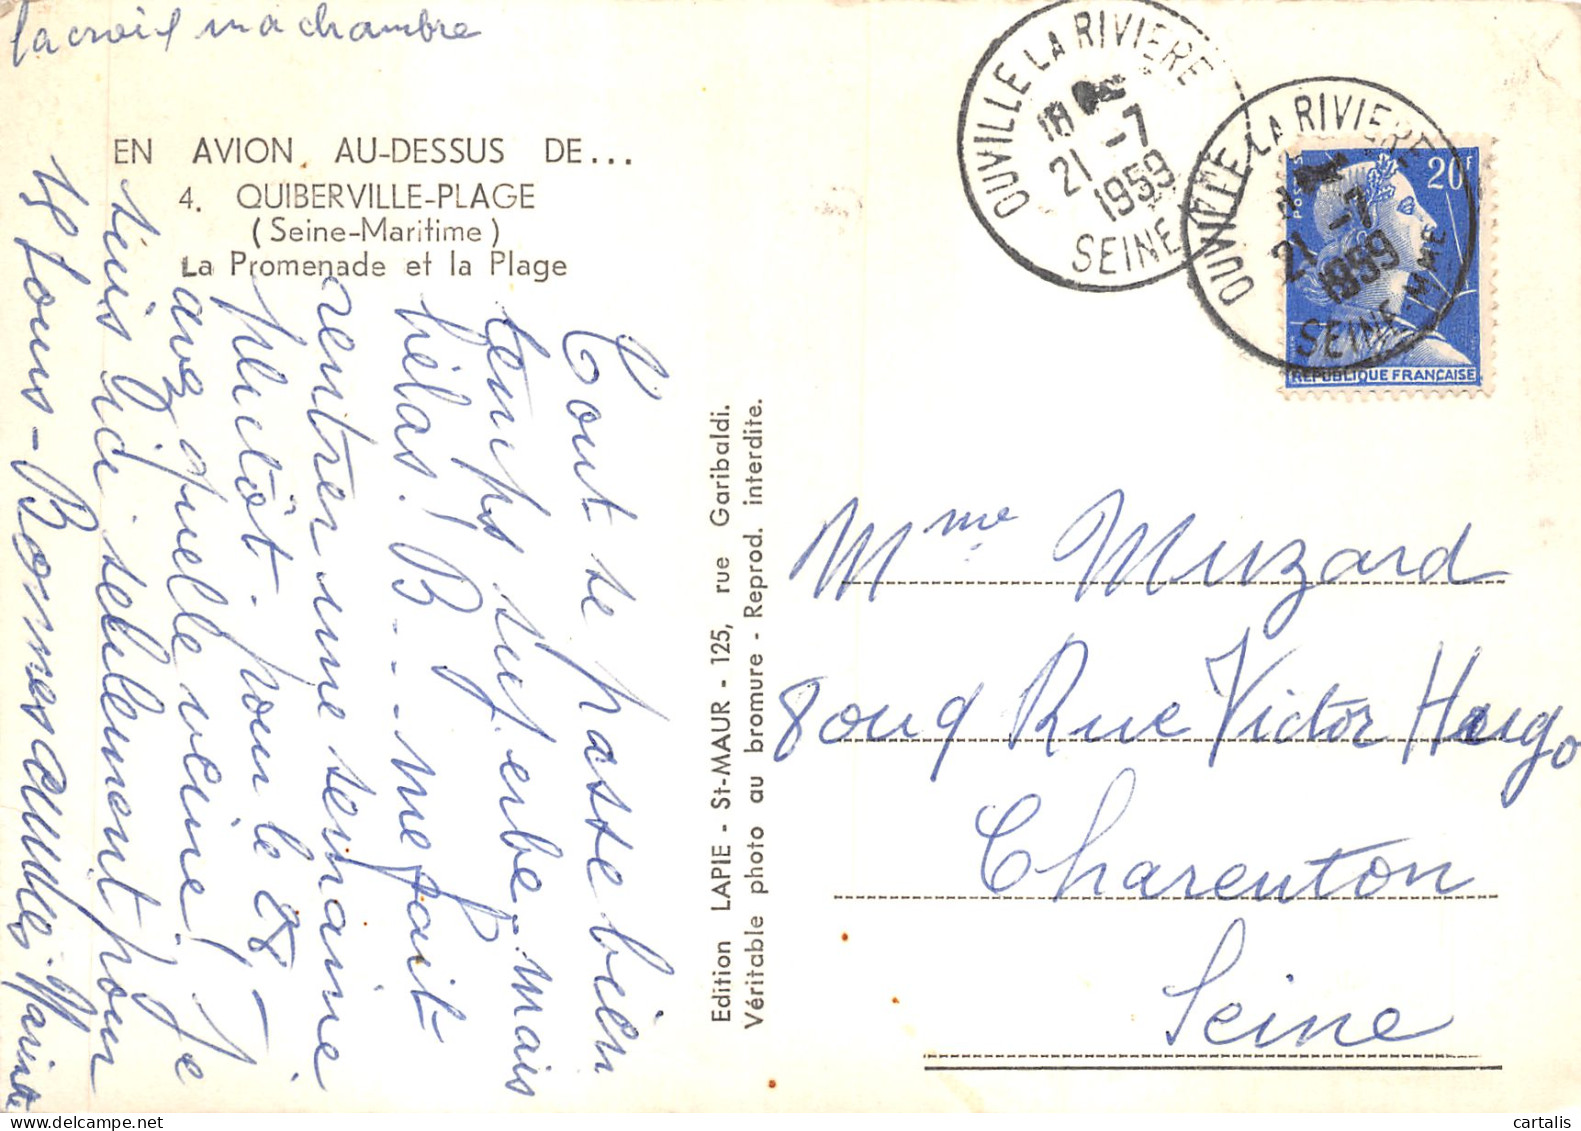 la croix ma chambre
EN AVION AU-DESSUS DE...
4. QUIBERVILLE-PLAGE
(Seine-Maritime)
La Promenade et la Plage
Tout se passe bien
temps superbe - mais
hélas! B... me fait
rentrer une semaine
plutôt - pour le 28
avez quelle veine! Je
suis ici seulement pour
Bonnes Marinette
Edition LAPIE - St-MAUR - 125, rue Garibaldi.
Véritable photo au bromure - Reprod. interdite.
OUVILLE LA RIVIERE
18
21 -7
1959
SEINE
OUVILLE LA RIVIERE
21 -7
1959
SEINE-MME
POSTES
20F
REPUBLIQUE FRANÇAISE
Mme Muzard
8 ou 9 Rue Victor Hugo
Charenton
Seine
cartalis